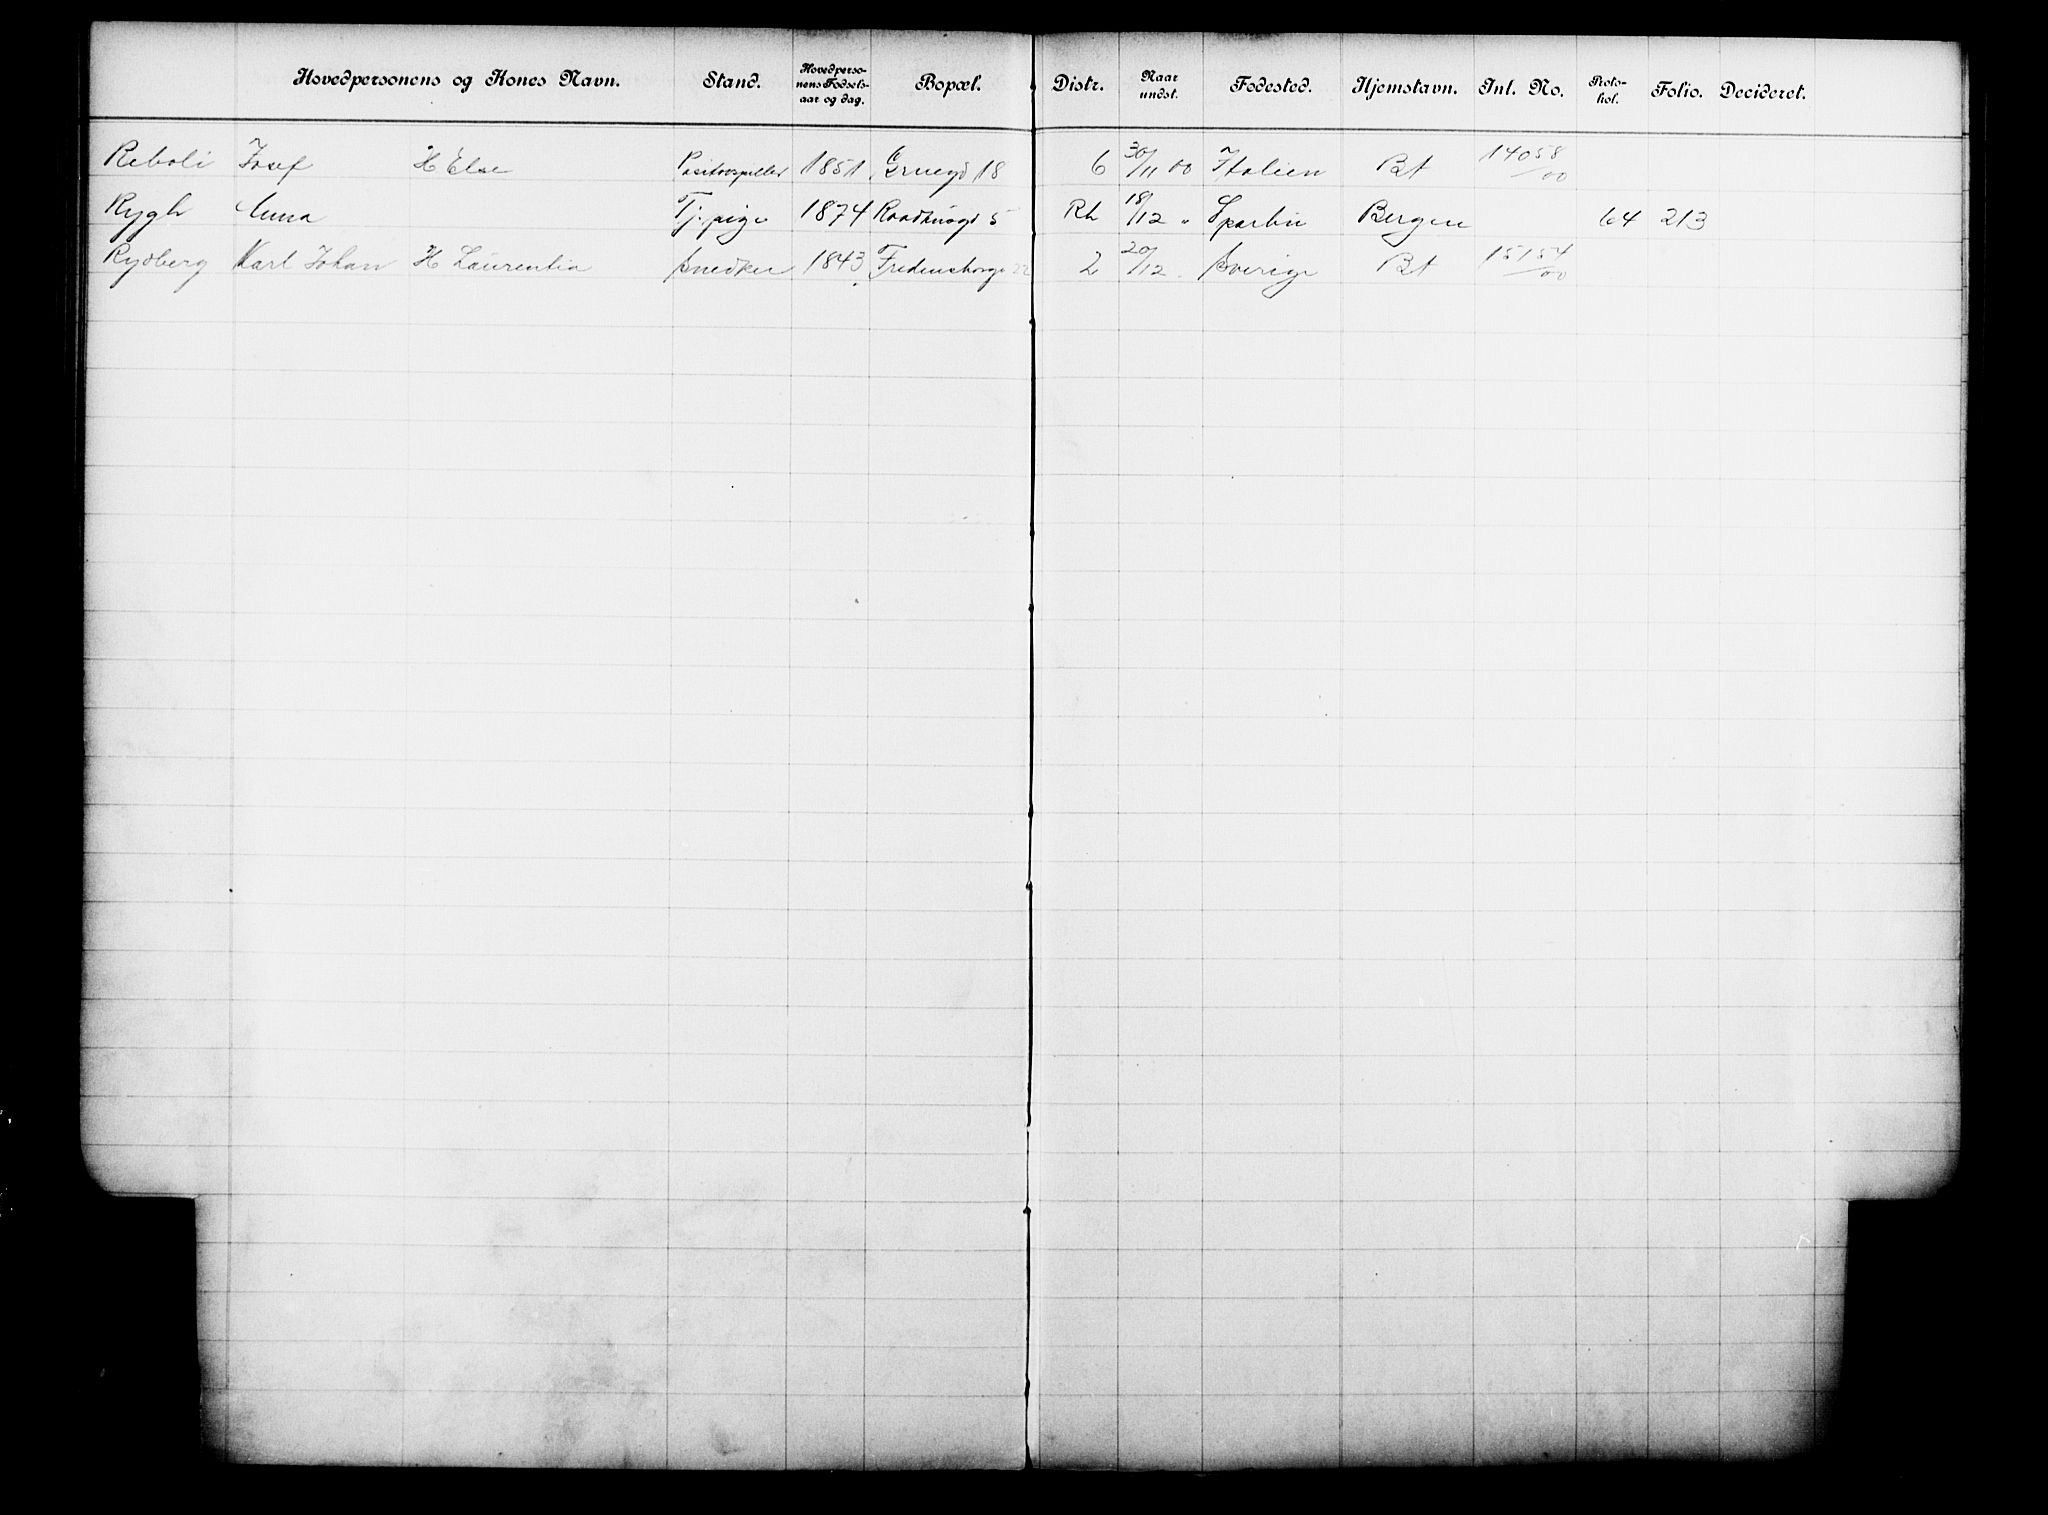 Hovedpersonens og Kones Navn. Stand. Hovedpersonens Fødsels-aar og dag. Bopæl. Distr. Naar undst. Fødested. Hjemstavn. Int. No. Proto-kol. Folio. Decideret.
Reboli Josef H Else Positivspiller 1851 Gruegd 18 6 30/11 00 Italien Bt 14058/00
Rygh Anna Tj. pige 1874 Raadhusgd 5 Rh 18/12 " Sparbu Bergen 64 213
Rydberg Karl Johan H Laurentia Snedker 1843 Fredensborgv 22 2 20/12 " Sverige Bt 15154/00